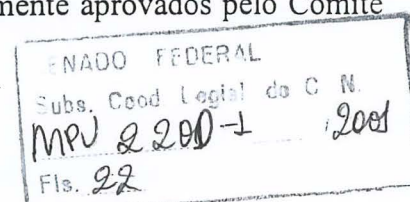 mente aprovados pelo Comitê
ENADO FEDERAL
Subs. Cood Legisl do C N.
MPV 2 200-1 , 2001
Fls. 22